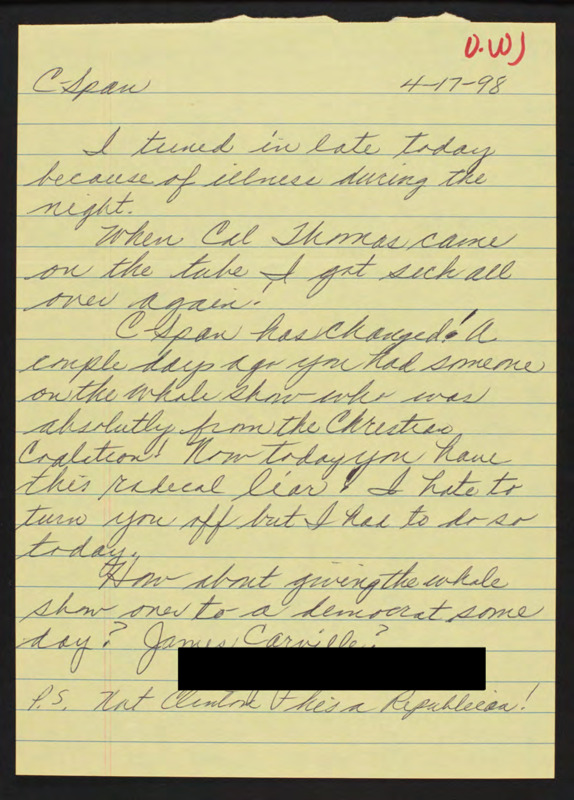 D.W)
C-Span 4-17-98
I tuned in late today
because of illness during the
night.
When Cal Thomas came
on the tube I got sick all
over again!
C Span has changed! A
couple days ago you had someone
on the whole show who was
absolutly from the Christian
Coalition! Now today you have
this radical liar! I hate to
turn you off but I had to do so
today.
How about giving the whole
show over to a democrat some
day? James Carville?
P.S. Not Clinton his a Republican!